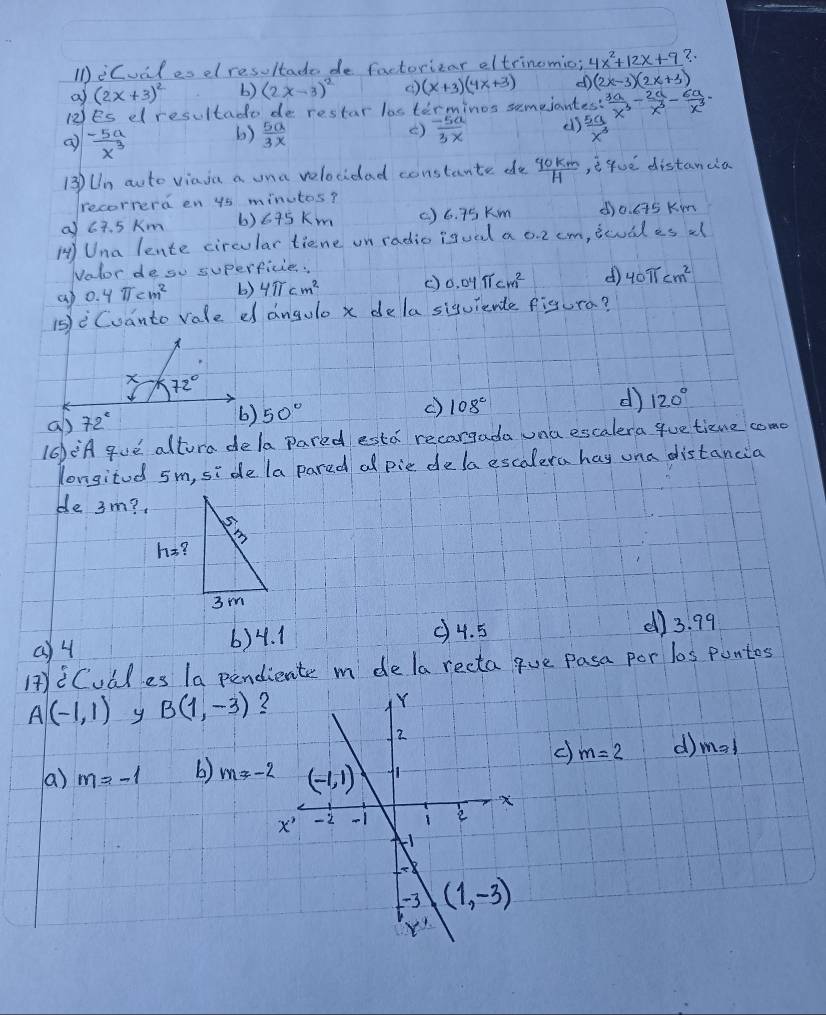 11) ¿Cuál es el resultado de factorizar el trinomio; 4x²+12x+9?.
a) (2x+3)² b) (2x-3)² c) (x+3)(4x+3) d) (2x-3)(2x+3)
12) Es el resultado de restar los términos semejantes: 3a/x³ - 2a/x³ - 6a/x³.
a) -5a/x³ b) 5a/3x c) -5a/3x d) 5a/x³
13) Un auto viaja a una velocidad constante de 90km/H, ¿qué distancia
recorrerá en 45 minutos?
a) 67.5 Km b) 675 Km c) 6.75 Km d) 0.675 Km
14) Una lente circular tiene un radio igual a 0.2 cm, ¿cuál es el
valor de su superficie.
a) 0.4 πcm² b) 4πcm² c) 0.04 πcm² d) 40πcm²
15) ¿Cuánto vale el ángulo x de la siguiente figura?
x 72°
a) 72° b) 50° c) 108° d) 120°
16) ¿A qué altura de la pared está recargada una escalera que tiene como
longitud 5m, si de la pared al pie de la escalera hay una distancia
de 3m?.
5m
h=?
3m
a) 4 b) 4.1 c) 4.5 d) 3.99
17) ¿Cuál es la pendiente m de la recta que pasa por los puntos
A(-1,1) y B(1,-3)?
a) m=-1 b) m=-2 c) m=2 d) m=1
Y
2
(-1,1) 1
X' -2 -1 1 2 X
-1
-2
-3 (1,-3)
Y'